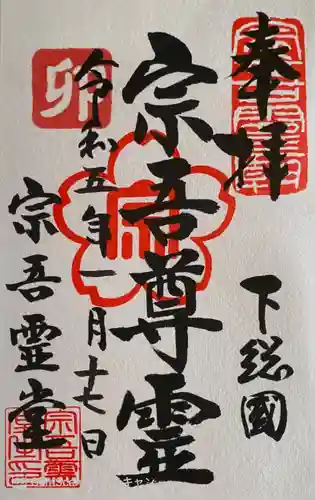 奉拝
下総國
宗吾尊霊
令和五年一月十七日
宗吾霊堂
卯